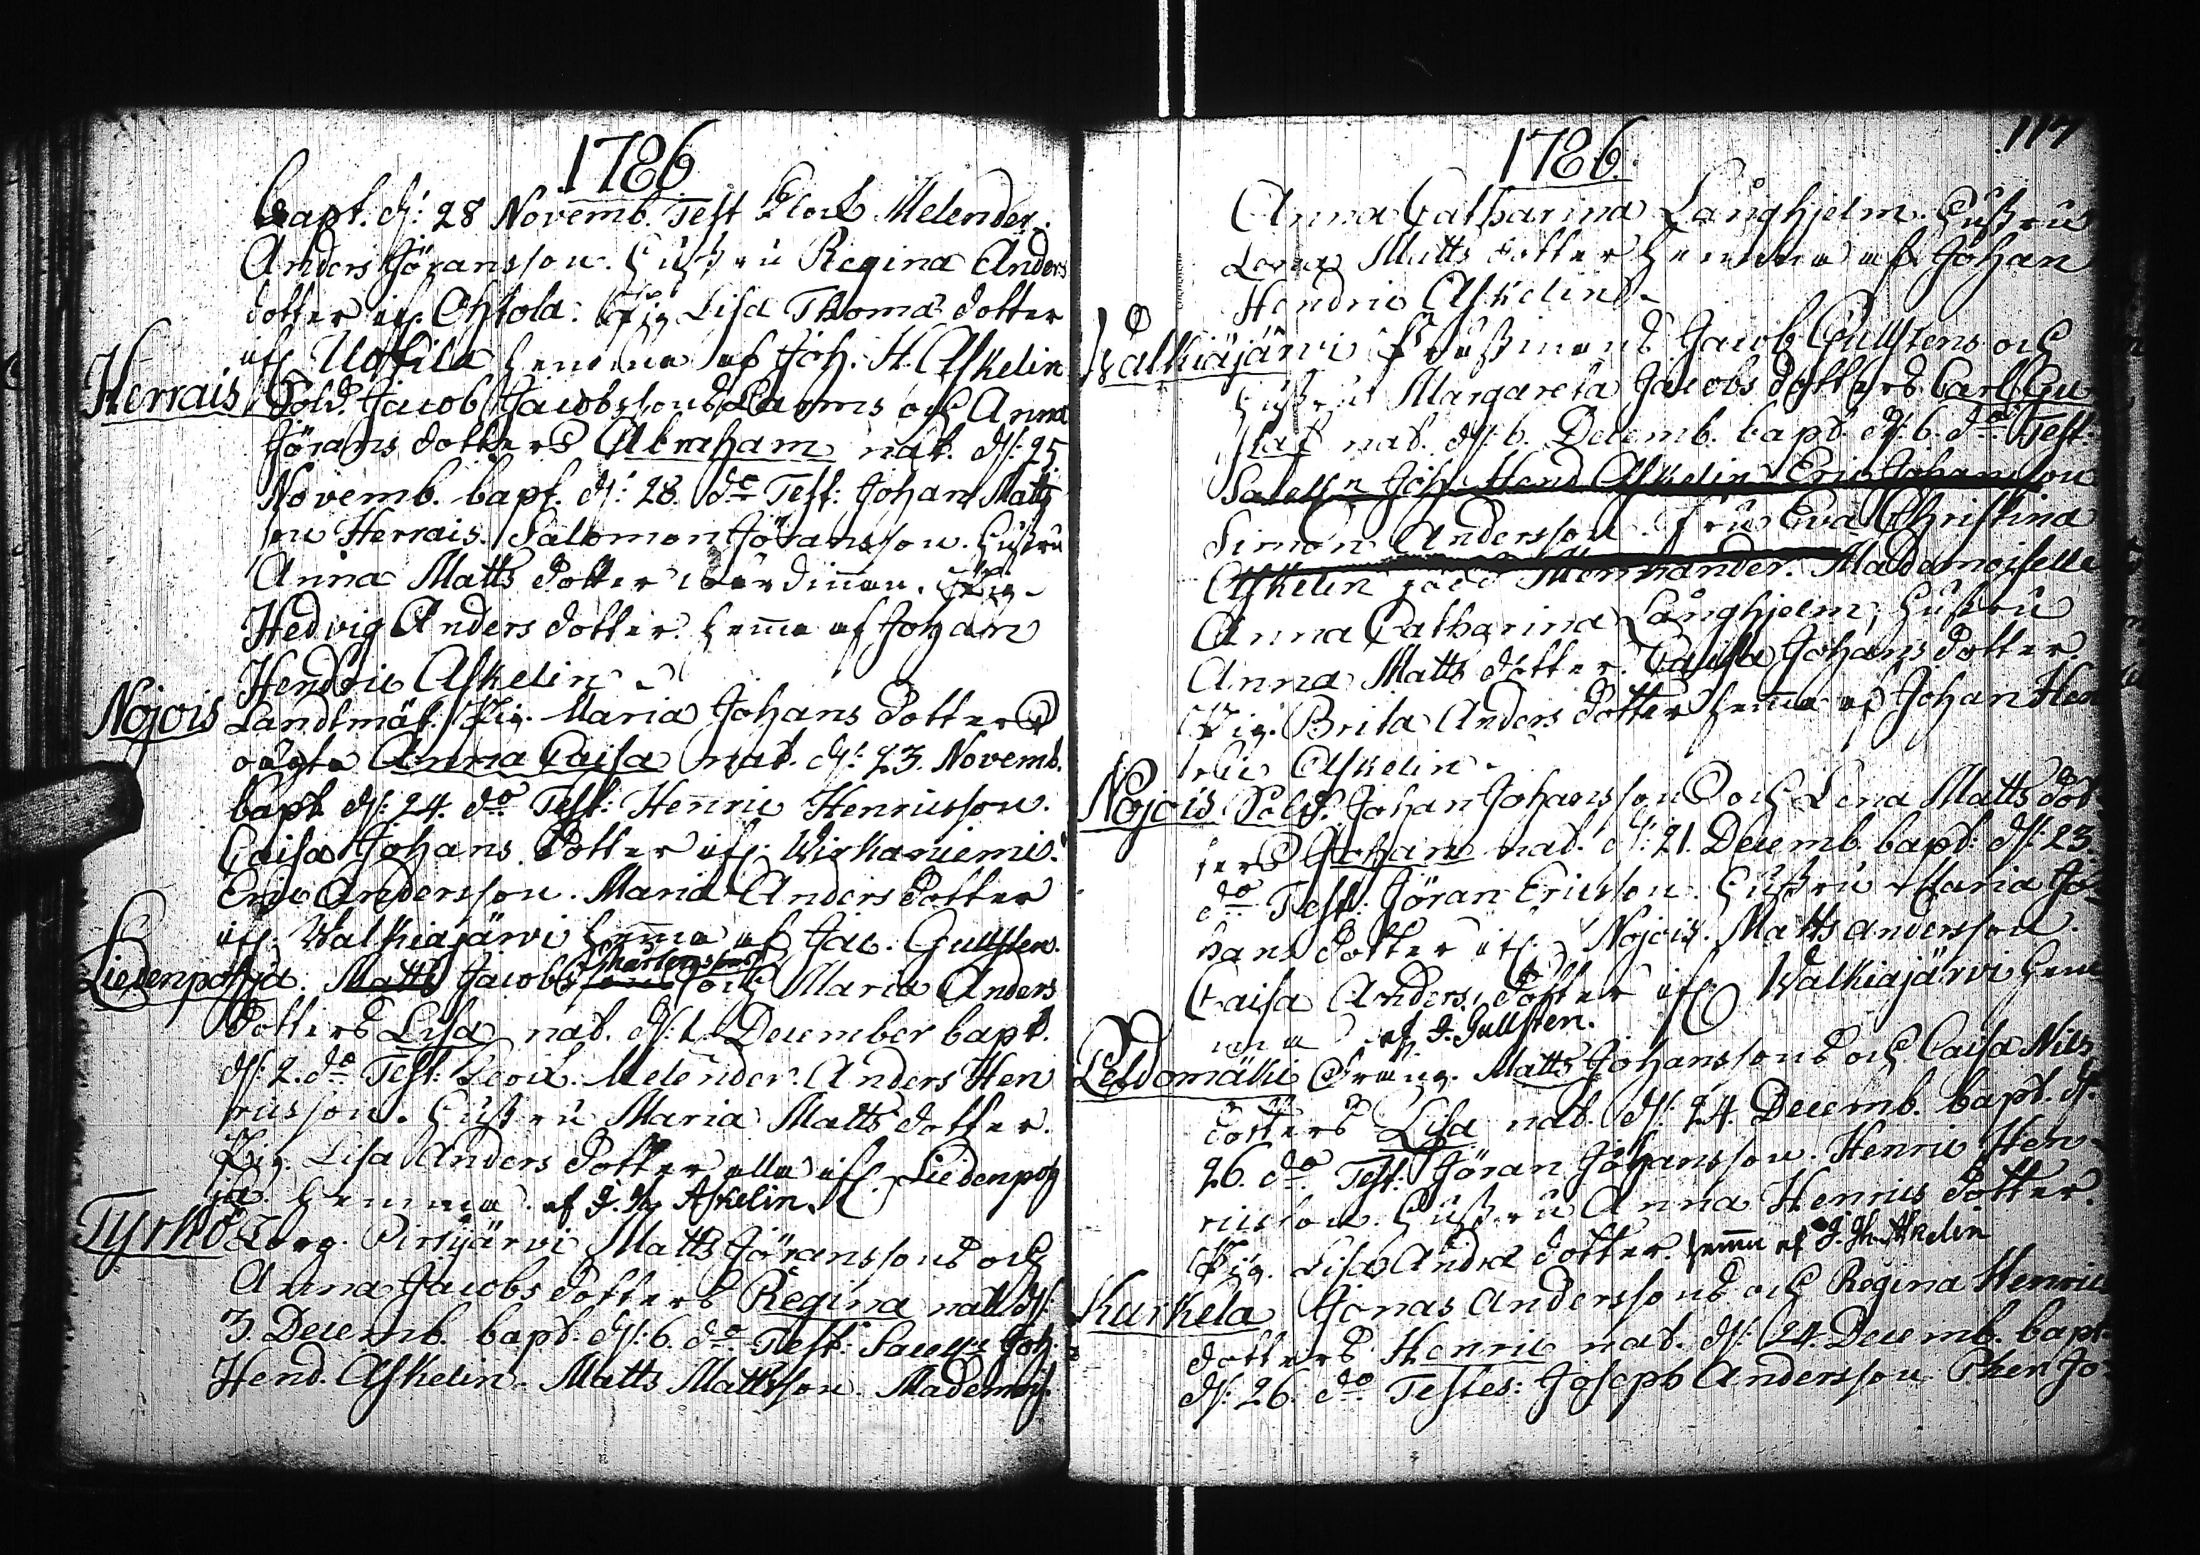 1786
bapt. d: 28 Novemb. Test Klock Melender.
Anders Göransson. Hustru Regina Anders
dotter if. Ohtola: Pig. Lisa Thomæ dotter
if. Uotila hemma af Joh. H. Askelin
Herrais Sold. Jacob Jacobssons Laurns och Anna
Görans dotters Abraham nat. d: 25
Novemb. bapt. d: 28 do Test: Johan Matts
son Herrais. Salomon Göransson. Hustru
Anna Matts dotter wärdinnan. Pig.
Hedvig Anders dotter. hemma af Johan
Hendric Askelin
Nojois Landtmät. Pig. Maria Johans Dotters
oägta Anna Caisa nat. d: 23. Novemb.
bapt d: 24. do Test: Henric Henricsson.
Caisa Johans Dotter if. Wirkaniemis.
Eric Andersson. Maria Anders Dotter
if. Walkiajärvi hemma af Jac. Gullsten.
Liedenpohja. Matts Jacobssons Mårtenssons och Maria Anders
Dotters Lisa nat. d: 1. December bapt.
d: 2. do Test: Melender. Anders Hen
ricsson. Hustru Maria Matts dotter.
Pig. Lisa Anders Dotter alla if. Liedenpoh
ja. hemma af J. H. Askelin.
Tyrkö Torp. Pirsijärvi Matts Göranssons och
Anna Jacobs dotters Regina nat. d:
3. Decemb. bapt. d: 6. do Test: Sacell: Joh:
Hend. Askelin. Matts Mattsson. Mademois.
117
1786.
Anna Catharina Långhjelm. Hustru
Lena Matts dotter hemma af Johan
Hendric Askelin
Walkiajärvi Prostmans Jacob Gullstens och
Hustru Margareta Jacobs dotters Carl Gu
staf nat. d: 6. Decemb. bapt. d: 6. do Test:
Sacell: Joh: Hend Askelin Eric Johansson
Simon Andersson. Fru Eva Christina
Askelin född Mennander. Mademoiselle
Anna Catharina Långhjelm, Hustru
Anna Matts dotter. Caisa Johans dotter
Pig. Brita Anders Dotter hemma af Johan Hen
dric Askelin.
Nojois Sold. Johan Johanssons och Lena Matts dot
ters Johan nat. d: 21. Decemb. bapt. d: 23.
do Test: Göran Ericsson. Hustru Maria Jo-
hans Dotter if. Nojois. Matts Andersson.
Caisa Anders Dotter if. Walkiajärvi hem
ma af J. Gullsten.
Peldomäki Dräng. Matts Johanssons och Caisa Nils
Dotters Lisa nat. d: 24. Decemb. bapt. d:
26. do Test: Göran Johansson. Henric Hen-
ricsson. Hustru Anna Henrics Dotter.
Pig. Lisa Andræ dotter. hemma af J. H. Askelin
Kurkela Jonas Anderssons och Regina Henrics
dotters Henric nat. d: 24. Decemb. bapt.
d: 26. do Testes: Joseph Andersson Pher Jo-